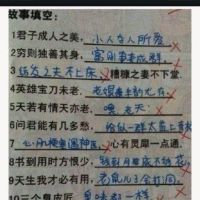 故事填空：
1君子成人之美，小人夺人所爱
2穷则独善其身，富则妻妾成群。
3 结发之夫不下床，糟糠之妻不下堂
4英雄宝刀未老，老娘丰韵也存
5天若有情天亦老，
6问君能有几多愁，恰似一群太监上青楼
7 心有灵犀一点通。
8书到用时方恨少，钱到月底不够花
9天生我才必有用，老鼠儿子会打洞
10三个臭皮匠，臭味都一样